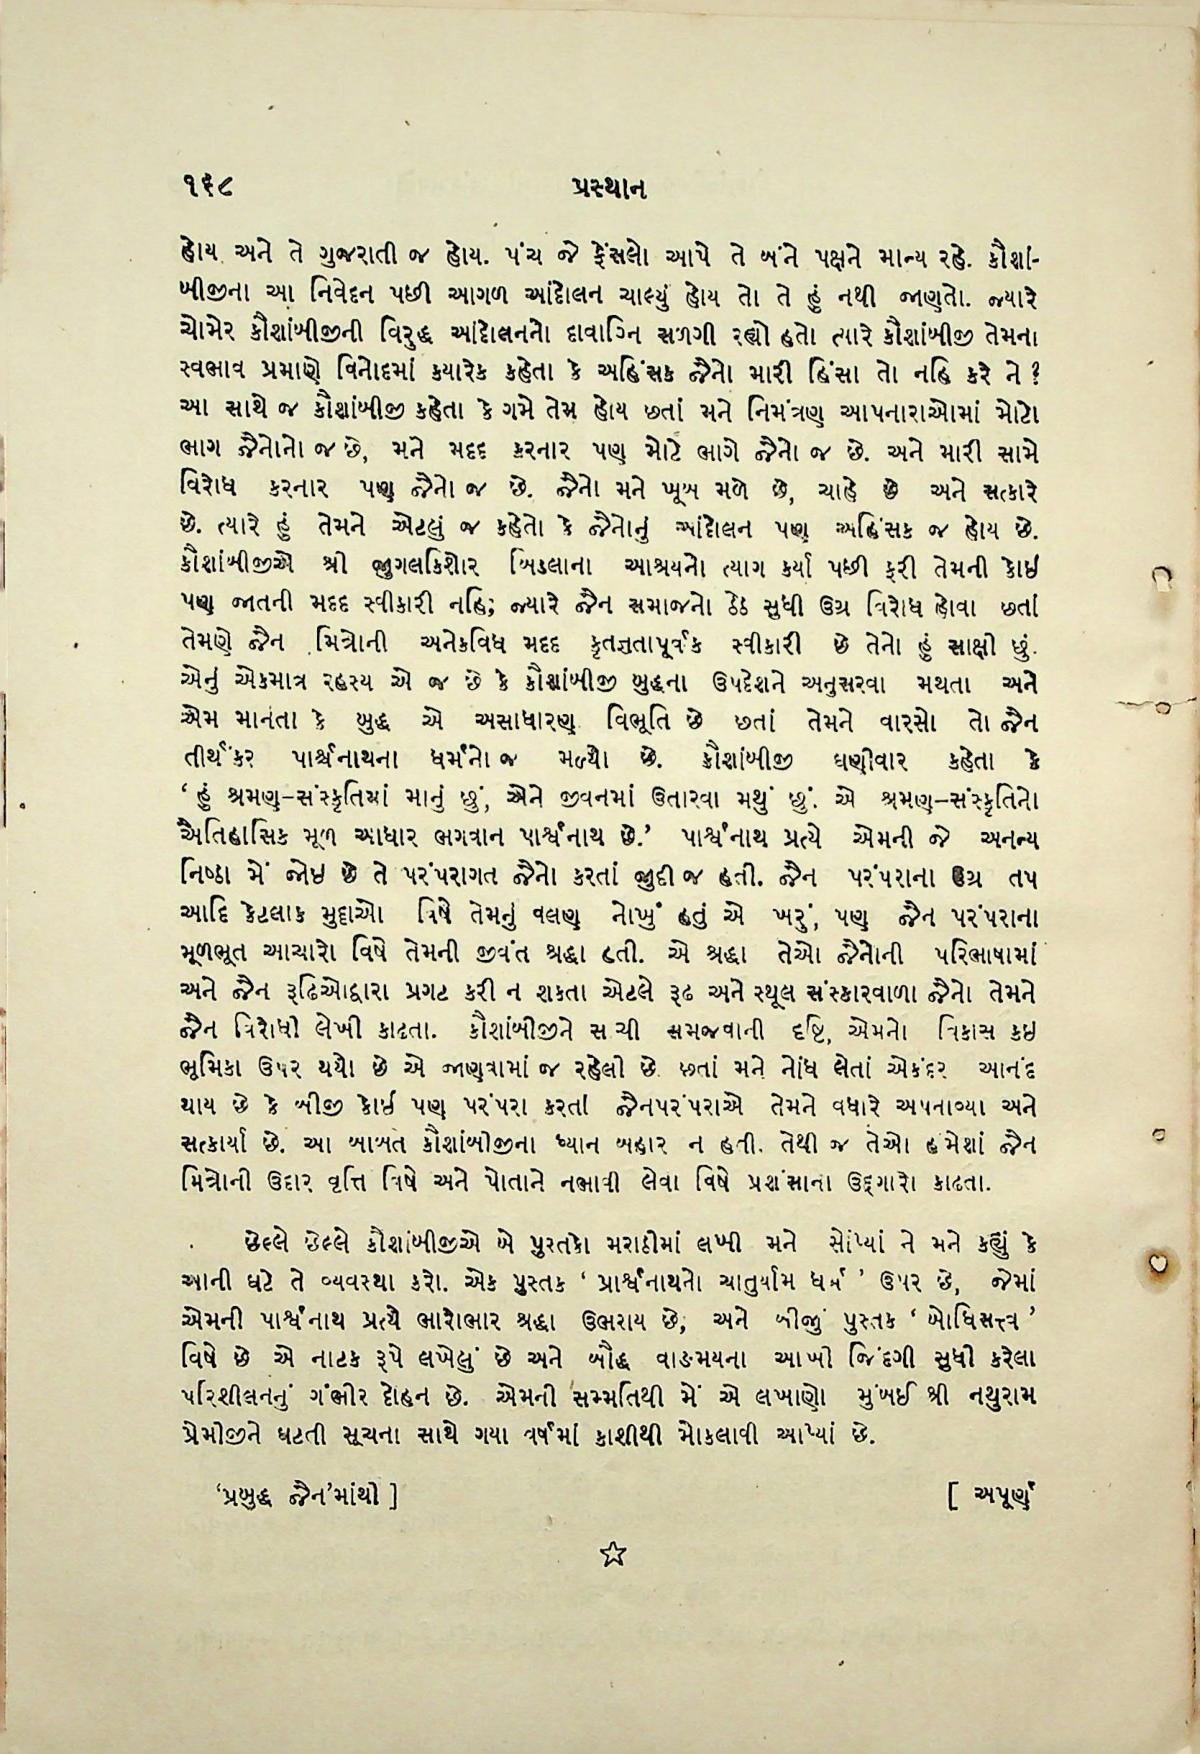 ૧૬૮
પ્રસ્થાન
હોય અને તે ગુજરાતી જ હોય. પંચ જે ફેંસલો આપે તે બંને પક્ષને માન્ય રહે. કૌશાં-
બીજીના આ નિવેદન પછી આગળ આંદોલન ચાલ્યું હોય તો તે હું નથી જાણતો. જ્યારે
ચોમેર કૌશાંબીજીની વિરુદ્ધ આંદોલનનો દાવાગ્નિ સળગી રહ્યો હતો ત્યારે કૌશાંબીજી તેમના
સ્વભાવ પ્રમાણે વિનોદમાં કયારેક કહેતા કે અહિંસક જૈનો મારી હિંસા તો નહિ કરે ને?
આ સાથે જ કૌશાંબીજી કહેતા કે ગમે તેમ હોય છતાં મને નિમંત્રણ આપનારાઓમાં મોટો
ભાગ જૈનોનો જ છે, મને મદદ કરનાર પણ મોટે ભાગે જૈનો જ છે. અને મારી સામે
વિરોધ કરનાર પણ જૈનો જ છે. જૈનો મને ખૂબ મળે છે, ચાહે છે અને સત્કારે
છે. ત્યારે હું તેમને એટલું જ કહેતો કે જૈનોનું આંદોલન પણ અહિંસક જ હોય છે.
કૌશાંબીજીએ શ્રી જુગલકિશોર બિડલાના આશ્રયનો ત્યાગ કર્યા પછી ફરી તેમની કોઇ
પણ જાતની મદદ સ્વીકારી નહિ; જ્યારે જૈન સમાજનો ઠેઠ સુધી ઉગ્ર વિરોધ હોવા છતાં
તેમણે જૈન મિત્રોની અનેકવિધ મદદ કૃતજ્ઞતાપૂર્વક સ્વીકારી છે તેનો હું સાક્ષી છું.
એનું એકમાત્ર રહસ્ય એ જ છે કે કૌશાંબીજી બુદ્ધના ઉપદેશને અનુસરવા મથતા અને
એમ માનતા કે બુદ્ધ એ અસાધારણ વિભૂતિ છે છતાં તેમને વારસો તો જૈન
તીર્થંકર પાર્શ્વનાથના ધર્મનો જ મળ્યો છે. કૌશાંબીજી ઘણીવાર કહેતા કે
‘હું શ્રમણ-સંસ્કૃતિમાં માનું છું, એને જીવનમાં ઉતારવા મથું છું. એ શ્રમણ-સંસ્કૃતિનો
ઐતિહાસિક મૂળ આધાર ભગવાન પાર્શ્વનાથ છે.’ પાર્શ્વનાથ પ્રત્યે એમની જે અનન્ય
નિષ્ઠા મેં જોઇ છે તે પરંપરાગત જૈનો કરતાં જુદી જ હતી. જૈન પરંપરાના ઉગ્ર તપ
આદિ કેટલાક મુદ્દાઓ વિષે તેમનું વલણ નોખું હતું એ ખરું, પણ જૈન પરંપરાના
મૂળભૂત આચારો વિષે તેમની જીવંત શ્રદ્ધા હતી. એ શ્રદ્ધા તેઓ જૈનોની પરિભાષામાં
અને જૈન રૂઢિઓદ્વારા પ્રગટ કરી ન શકતા એટલે રૂઢ અને સ્થૂલ સંસ્કારવાળા જૈનો તેમને
જૈન વિરોધી લેખી કાઢતા. કૌશાંબીજીને સ ચી સમજવાની દૃષ્ટિ, એમનો વિકાસ કઇ
ભૂમિકા ઉપર થયો છે એ જાણવામાં જ રહેલી છે છતાં મને નોંધ લેતાં એકંદર આનંદ
થાય છે કે બીજી કોઇ પણ પરંપરા કરતાં જૈનપરંપરાએ તેમને વધારે અપનાવ્યા અને
સત્કાર્યા છે. આ બાબત કૌશાંબીજીના ધ્યાન બહાર ન હતી. તેથી જ તેઓ હમેશાં જૈન
મિત્રોની ઉદાર વૃત્તિ વિષે અને પોતાને નભાવી લેવા વિષે પ્રશંસાના ઉદ્ગારો કાઢતા.
છેલ્લે છેલ્લે કૌશાંબીજીએ બે પુસ્તકો મરાઠીમાં લખી મને સોંપ્યાં ને મને કહ્યું કે
આની ઘટે તે વ્યવસ્થા કરો. એક પુસ્તક ‘પાર્શ્વનાથનો ચાતુર્યામ ધર્મ’ ઉપર છે, જેમાં
એમની પાર્શ્વનાથ પ્રત્યે ભારોભાર શ્રદ્ધા ઉભરાય છે; અને બીજું પુસ્તક ‘બોધિસત્ત્વ’
વિષે છે એ નાટક રૂપે લખેલું છે અને બૌદ્ધ વાઙમયના આખી જિંદગી સુધી કરેલા
પરિશીલનનું ગંભીર દોહન છે. એમની સમ્મતિથી મેં એ લખાણો મુંબઈ શ્રી નથુરામ
પ્રેમીજીને ઘટતી સૂચના સાથે ગયા વર્ષમાં કાશીથી મોકલાવી આપ્યાં છે.
‘પ્રબુદ્ધ જૈન’માંથી ]
[ અપૂર્ણ